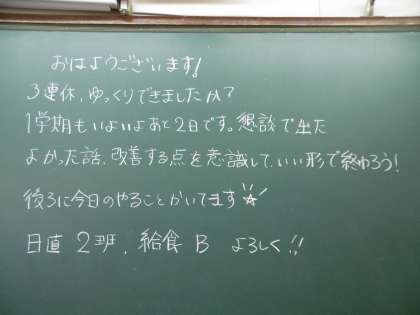 おはようございます!
3連休、ゆっくりできましたか?
1学期もいよいよあと2日です。懇談で出た
よかった話、改善する点を意識して、いい形で終わろう!
後ろに今日のやることかいてます☆
日直 2班、給食 B よろしく!!